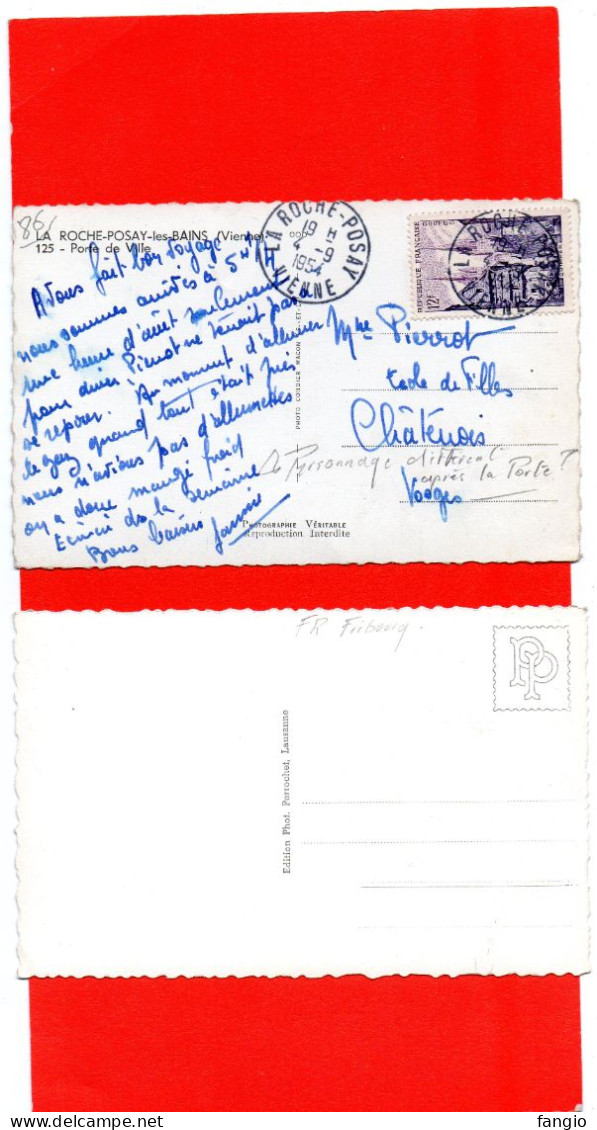 86
LA ROCHE-POSAY-les-BAINS (Vienne)
125 - Porte de Ville
LA ROCHE-POSAY
19 H
4 - 9
1954
VIENNE
REPUBLIQUE FRANÇAISE
12F
LA ROCHE-POSAY
VIENNE
fait bon voyage
nous sommes arrivés à 5H
une heure d'arrêt seulement
pour dîner, Pierrot ne tenait pas
se reposer. Au moment d'allumer
le gaz quand tout était prêt
nous n'avions pas d'allumettes
on a donc mangé froid
Ecrirai ds la semaine
Bons baisers
PHOTO COMBIER MACON
Mme Pierrot
Ecole de Filles
Châtenois
Vosges
Personnage différent
après la Porte ?
Photographie Véritable
Reproduction Interdite
FR Fribourg.
Edition Phot. Perrochet, Lausanne
fangio